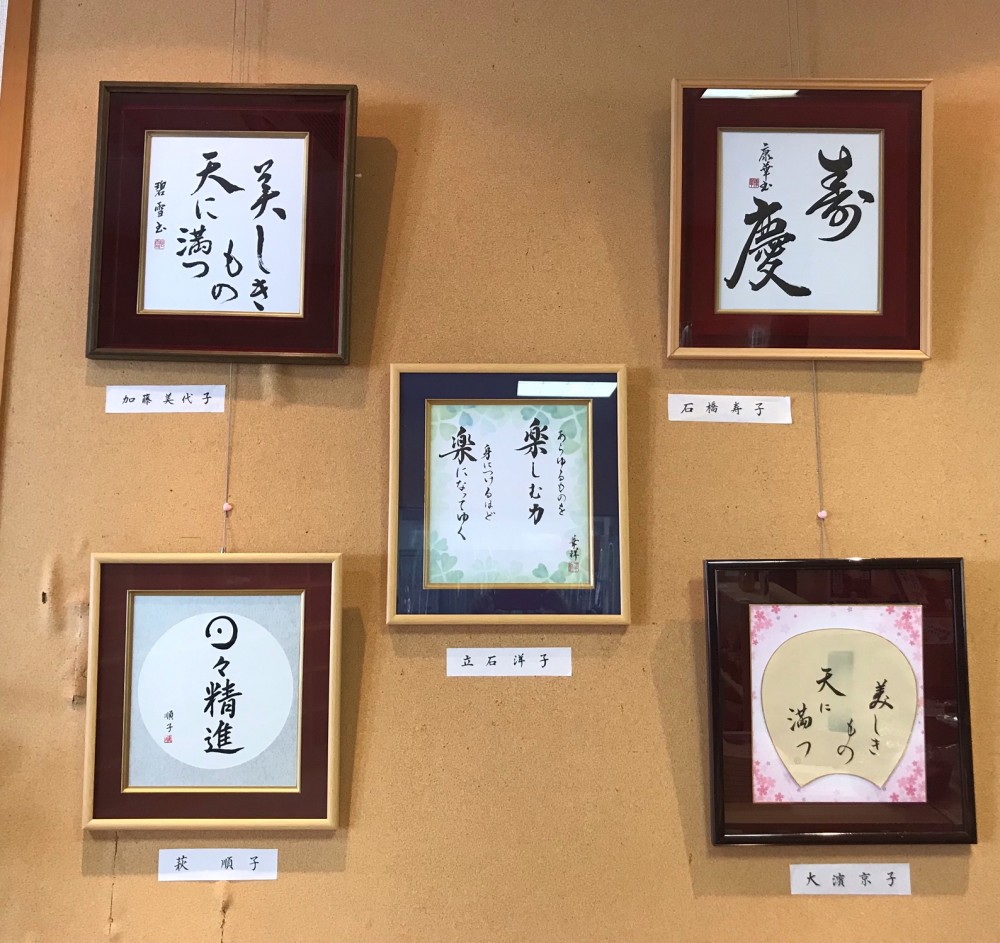 美しき
もの
天に
満つ
碧雪書
加藤美代子
寿
慶
康華書
石橋寿子
あらゆるものを
楽しむ力
身につけるほど
楽になってゆく
立石洋子
日々精進
順子
萩 順子
美しき
もの
天に
満つ
大濱京子